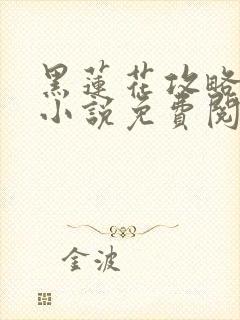 黑蓮花攻略
小說免費閱
金波